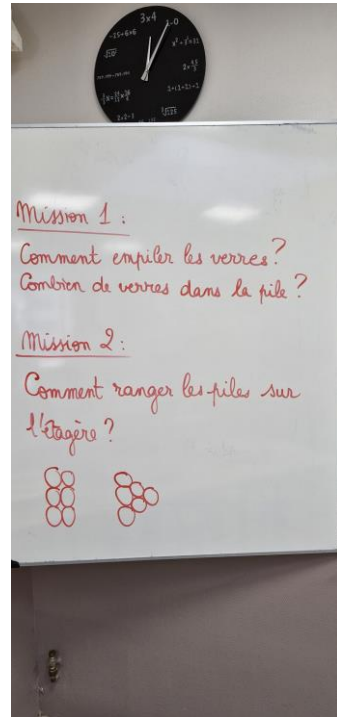 3x4
Mission 1 :
Comment empiler les verres ?
Combien de verres dans la pile ?
Mission 2 :
Comment ranger les piles sur
l'étagère ?